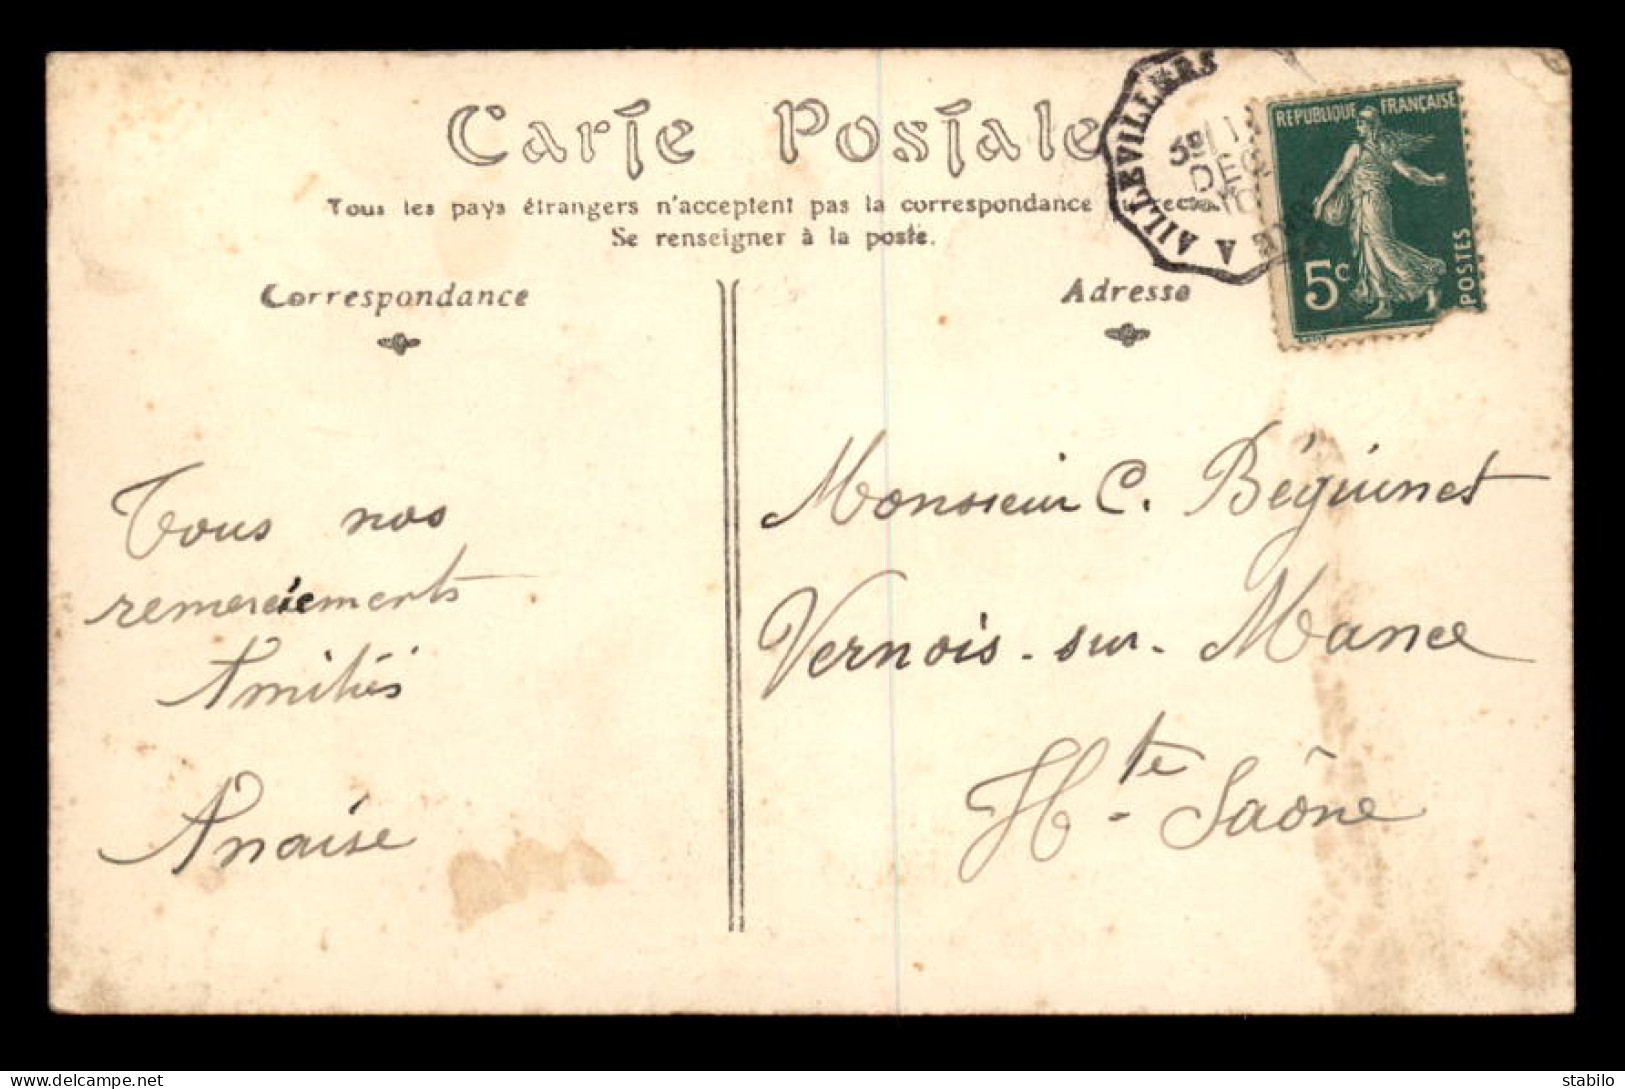 Carte Postale
Tous les pays étrangers n'acceptent pas la correspondance
Se renseigner à la poste.
Correspondance
Adresse
AILLEVILLERS
DEC
RÉPUBLIQUE FRANÇAISE
5c
POSTES
Tous nos
remerciements
Amitiés
Anaïse
Monsieur C. Béguinet
Vernois-sur-Mance
Hte-Saône
https://www.delcampe.net
stabilo